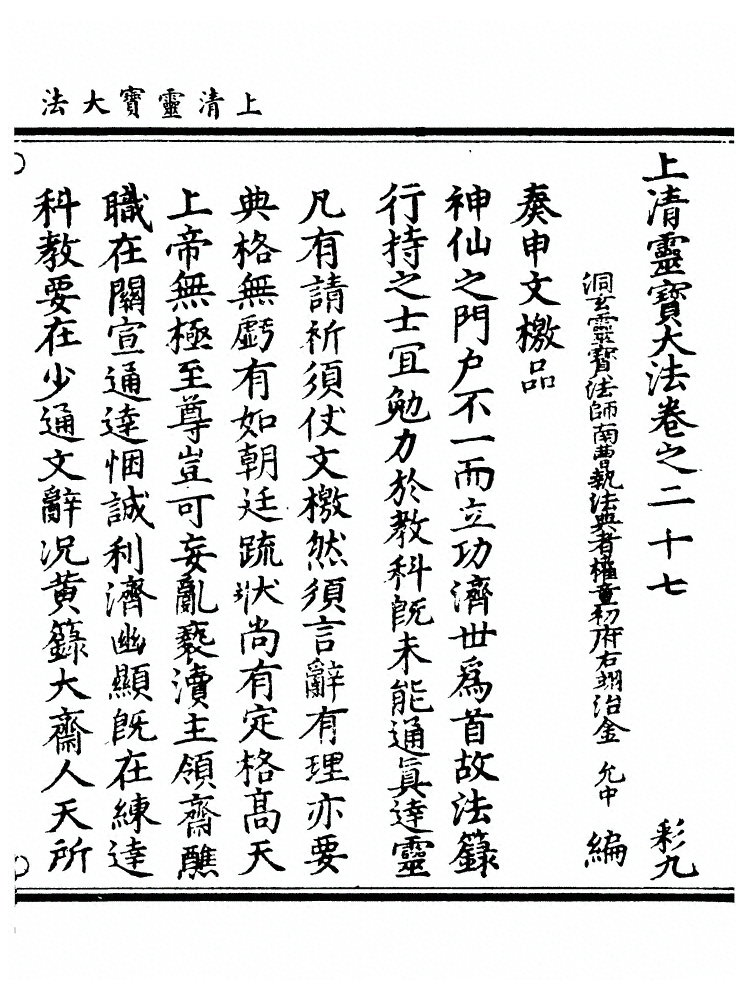 上清靈寶大法
上清靈寶大法卷之二十七 彩九
洞玄靈寶法師南曹執法典者權童初府右翊治金 允中 編
奏申文檄品
神仙之門户不一而立功濟世爲首故法籙
行持之士冝勉力於教科旣未能通眞達靈
凡有請祈須仗文檄然須言辭有理亦要
典格無虧有如朝廷䟽狀尚有定格髙天
上帝無極至尊豈可妄亂䙝瀆主領齋醮
職在關宣通達悃誠利濟幽顯旣在練達
科教要在少通文辭况黄籙大齋人天所